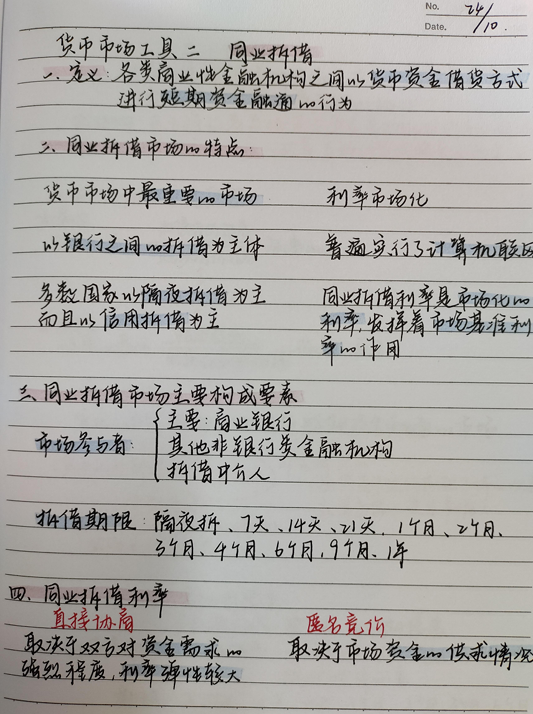 No. 24/10.
Date.
货币市场工具二 同业拆借
一、定义:各类商业性金融机构之间以货币资金借贷方式
进行短期资金融通的行为
二、同业拆借市场的特点:
货币市场中最重要的市场 利率市场化
以银行之间的拆借为主体 普遍实行了计算机联网
多数国家以隔夜拆借为主 同业拆借利率是市场化的
而且以信用拆借为主 利率,发挥着市场基准利
率的作用
三、同业拆借市场主要构成要素
主要:商业银行
市场参与者: 其他非银行类金融机构
拆借中介人
拆借期限:隔夜拆、7天、14天、21天、1个月、2个月、
3个月、4个月、6个月,9个月、1年
四、同业拆借利率
直接协商 匿名竞价
取决于双方对资金需求的 取决于市场资金的供求情况
强烈程度,利率弹性较大